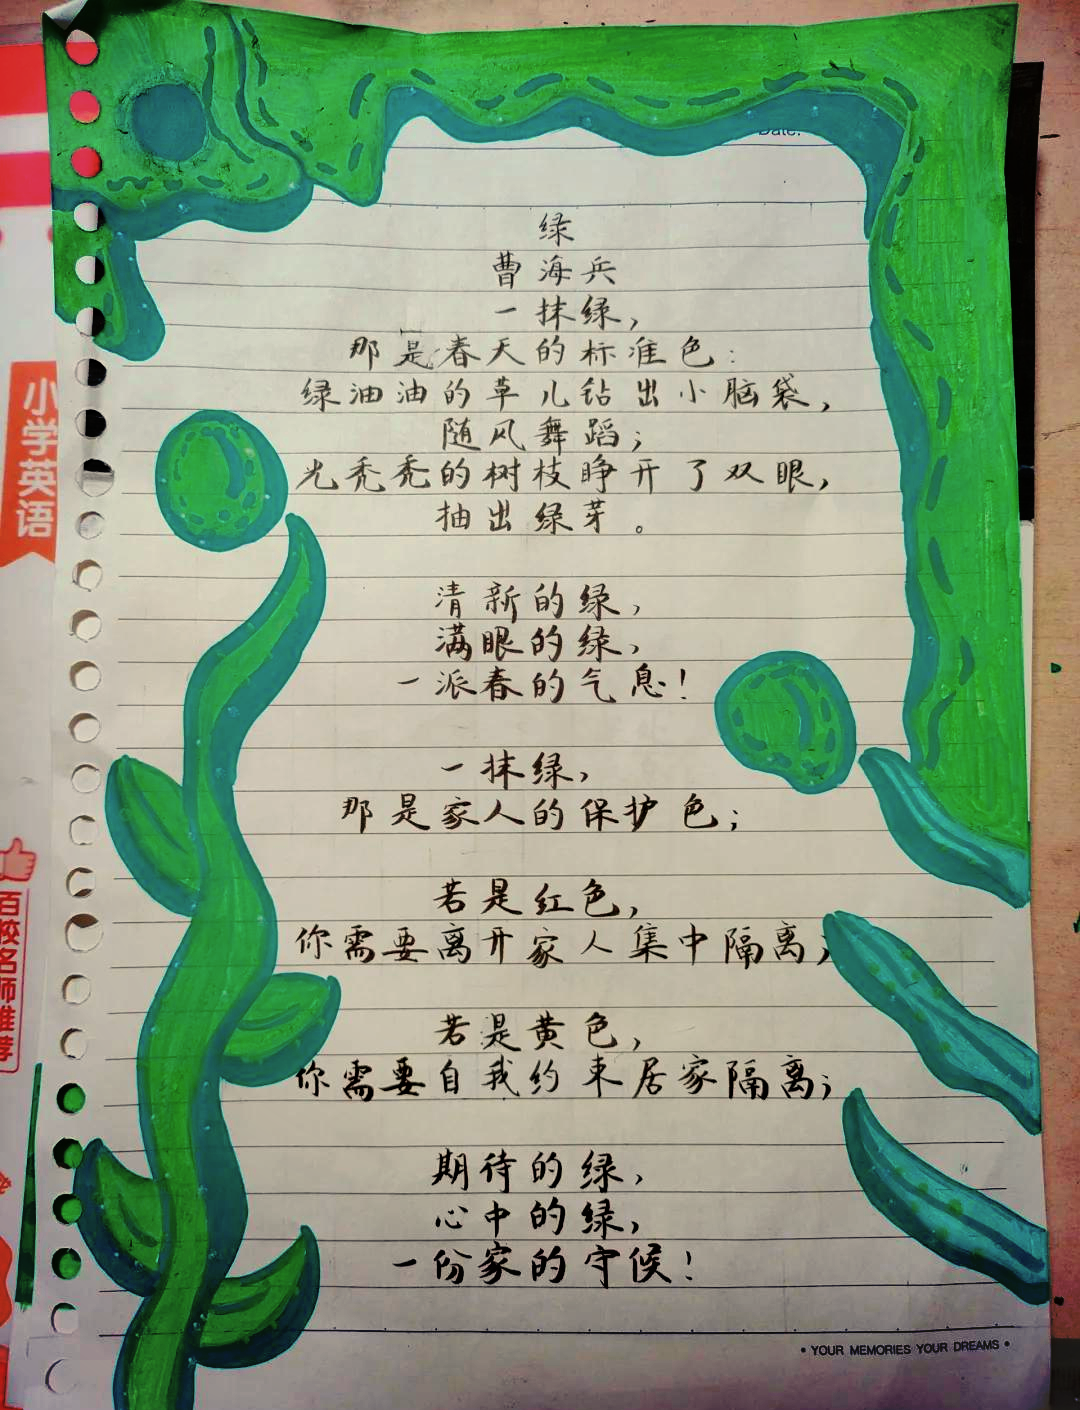 Date:
绿
曹海兵
一抹绿，
那是春天的标准色：
绿油油的草儿钻出小脑袋，
随风舞蹈；
光秃秃的树枝睁开了双眼，
抽出绿芽。
清新的绿，
满眼的绿，
一派春的气息！
一抹绿，
那是家人的保护色；
若是红色，
你需要离开家人集中隔离；
若是黄色，
你需要自我约束居家隔离；
期待的绿，
心中的绿，
一份家的守候！
• YOUR MEMORIES YOUR DREAMS •
小学英语
百校名师推荐